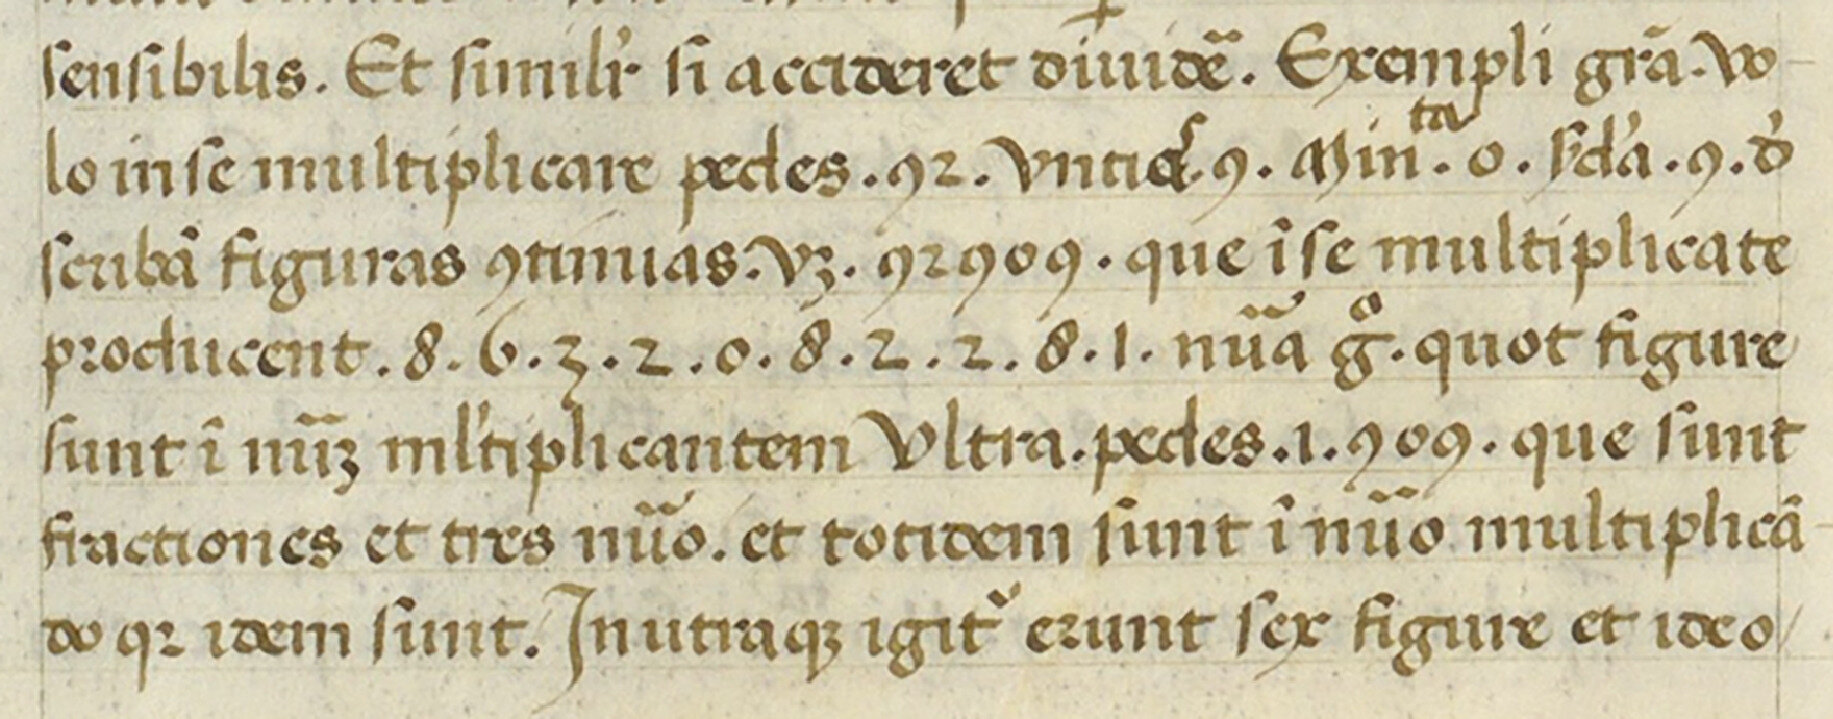 sensibilis. Et simil'r si accideret diuidē. Exempli grā. vo-
lo in se multiplicare pedes .92. vnciaꝝ .9. Minᵗᵃ. 0. s'd'a. 9. d'
scribā figuras ꝯtinuas. vꝫ. 92909. que ī se multiplicate
producent .8.6.3.2.0.8.2.2.8.1. nūa g̊. quot figure
sunt ī nūꝫ ml'tiplicantem Vltra. pedes .1. 909. que sunt
fractiones et tres nūo. et totidem sunt ī nūo multiplicā
do qꝛ idem sunt. In utraqꝫ igit' erunt sex figure et ideo